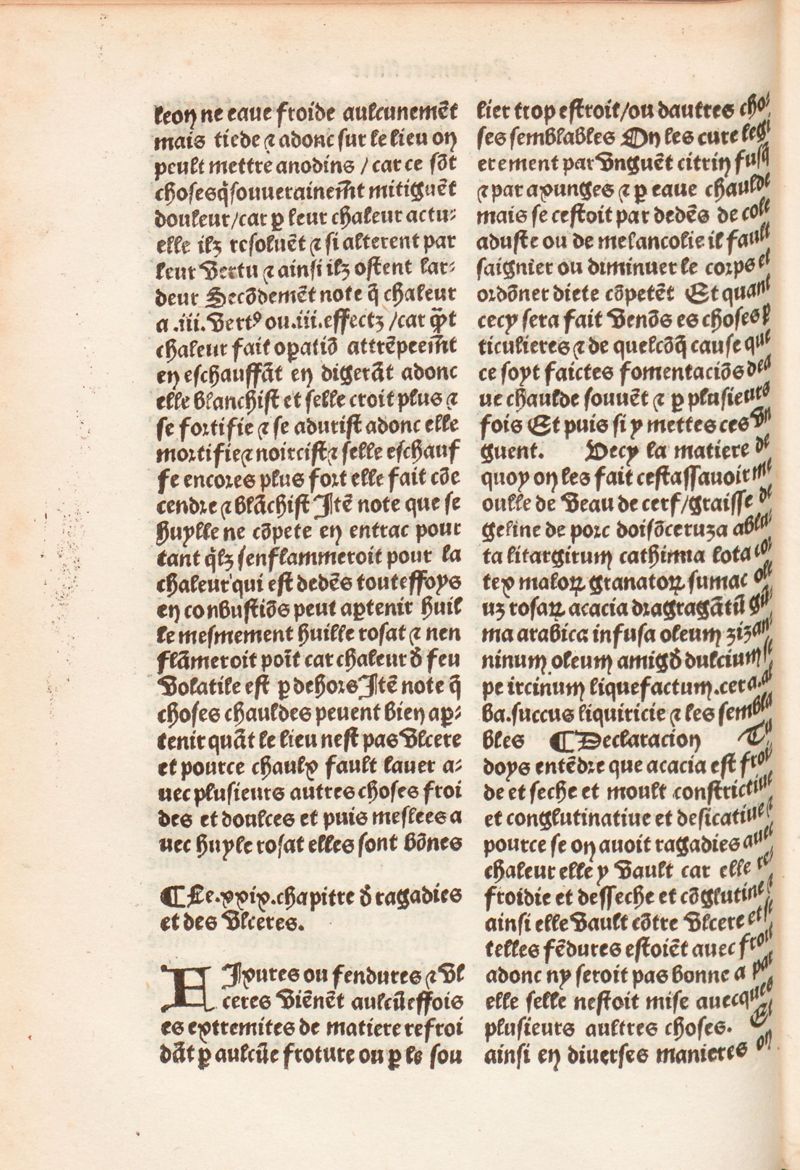 leon ne eaue froide aulcunemẽt
mais tiede ⁊ adonc sur le lieu on
peult mettre anodins / car ce sõt
choses q̃ souuerainem̃t mitiguẽt
douleur/car ꝑ leur chaleur actu⸗
elle ilz resoluẽt ⁊ si alterent par
leur vertu ⁊ ainsi ilz ostent lar⸗
deur Secõdemẽt note q̃ chaleur
a .iii. vertꝰ ou .iii. effectz /car q̃̃t
chaleur fait oꝑatiõ attrẽpeem̃t
en eschauffãt en digerãt adonc
elle blanchist et selle croit plus ⁊
se fortifie ⁊ se adurist adonc elle
mortifie ⁊ noircist ⁊ selle eschauf
fe encores plus fort elle fait cõe
cendre ⁊ blãchist Itẽ note que se
huylle ne cõpete en entrac pour
tant q̃lz senflammeroit pour la
chaleur qui est dedẽs touteffoys
en conbustiõs peut aꝑtenir huil
le mesmement huille rosat ⁊ nen
flãmeroit poīt car chaleur ð feu
volatile est ꝑ dehors Itẽ note q̃
choses chauldes peuent bien aꝑ⸗
tenir quãt le lieu nest pas vlcere
et pource chaulx fault lauer a⸗
uec plusieurs autres choses froi
des et doulces et puis meslees a
uec huyle rosat elles sont bõnes
¶Le .xxix. chapitre ð ragadies
et des vlceres.
FIxures ou fendures ⁊ vl
ceres viẽnẽt aulcũeffois
es extremites de matiere refroi
dãt ꝑ aulcũe froture ou ꝑ le sou
lier trop estroit/ou dautres cho⸗
ses semblables On les cure legi
erement par vnguẽt citrin fusq̃
⁊ par axunges ⁊ ꝑ eaue chaulde
mais se cestoit par dedẽs de cole
aduste ou de melancolie il fault
saignier ou diminuer le corps et
ordõner diete cõpetẽt Et quant
cecy sera fait venõs es choses ꝑ
ticulieres ⁊ de quelcõq̃ cause que
ce soyt faictes fomentaciõs dea
ue chaulde souuẽt ⁊ ꝑ plusieurs
fois Et puis si y mettes ces vn
guent. Vecy la matiere de
quoy on les fait cestassauoir me
oulle de veau de cerf/graisse de
geline de porc doisõ ceruza abla
ta litargirum cathimia lota cor
tex malorꝝ granatorꝝ sumac ole
uz rosarꝝ acacia dragragãtũ gũ
ma arabica infusa oleum zizan
ninum oleum amigð dulcium se
pe ircinum liquefactum .cera. al
ba. succus liquiricie ⁊ les sembla
bles ¶Declaracion Tu
doys entẽdre que acacia est froi
de et seche et moult constrictiue
et conglutinatiue et desicatiue
pource se on auoit ragadies auec
chaleur elle y vault car elle re
froidie et desseche et cõglutine
ainsi elle vault cõtre vlcere et se
telles fẽdures estoiẽt auec froit
adonc ny seroit pas bonne a par
elle selle nestoit mise auecques
plusieurs aultres choses. Et
ainsi en diuerses manieres on